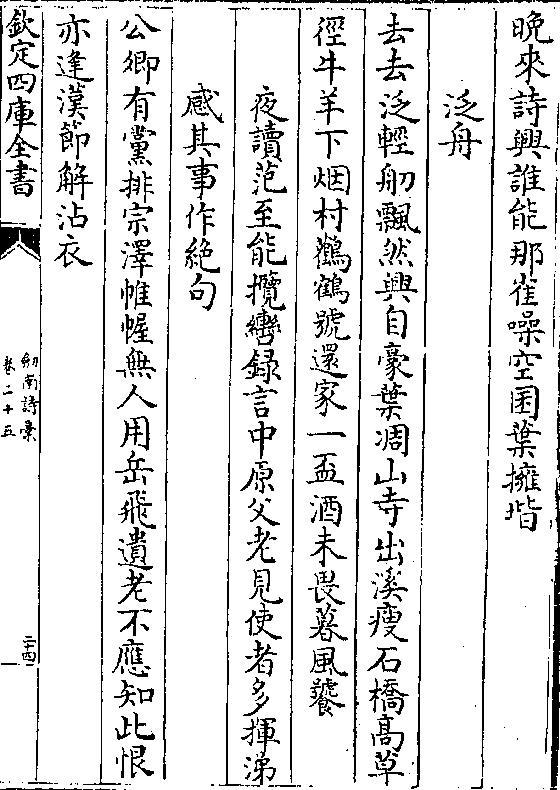 晚來詩興誰能那雀噪空囷葉擁堦
泛舟
去去泛輕舠飄然興自豪葉凋山寺出溪瘦石橋髙草
徑牛羊下烟村鸛鶴號還家一盃酒未畏暮風饕
夜讀范至能攬轡録言中原父老見使者多揮涕
感其事作絶句
公卿有黨排宗澤帷幄無人用岳飛遺老不應知此恨
亦逢漢節解沾衣
欽定四庫全書
劒南詩稾
卷二十五
二十四